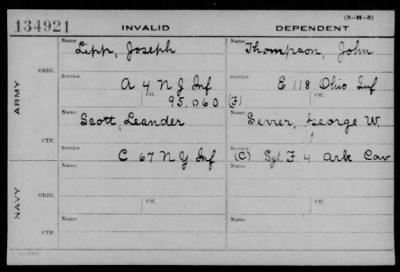 (3-11-5)
134921 INVALID DEPENDENT
Name Lipp, Joseph Name Thompson, John
ORIG.
Service A 4 N J Inf Service E 118 Ohio Inf
Ctf. 95,060 Ctf. (F)
ARMY
Name Scott, Leander Name George W.
CTF.
Service C 67 N Y Inf Service (C) Sgt. F 4 Ark Cav
Name Name
ORIG.
Ctf. Ctf.
NAVY
Name Name
CTF.